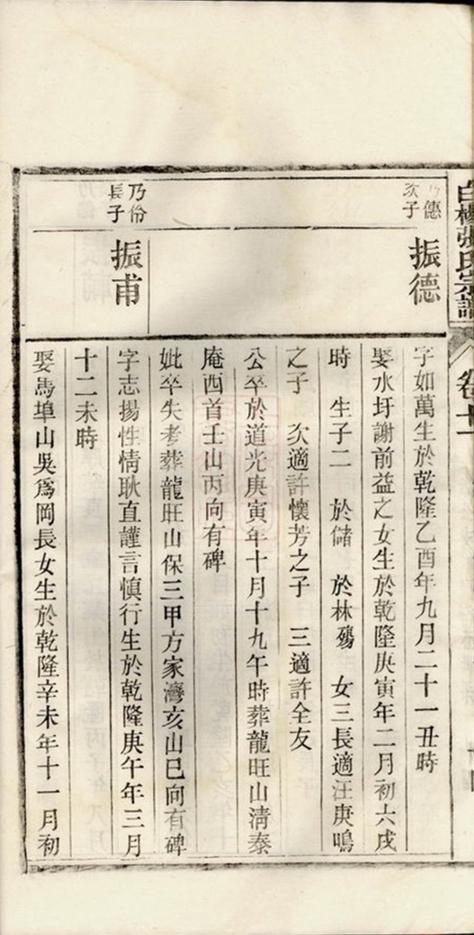 白楊張氏宗譜
卷十一
德
次子
振德
字如萬生於乾隆乙酉年九月二十一丑時
娶水圩謝前益之女生於乾隆庚寅年二月初六戌
時　生子二　於儲　於林殤　女三長適汪庚鳴
之子　次適許懷芳之子　三適許全友
公卒於道光庚寅年十月十九午時葬龍旺山清泰
庵酉首壬山丙向有碑
妣卒失考葬龍旺山保三甲方家灣亥山巳向有碑
乃俗
長子
振甫
字志揚性情耿直謹言慎行生於乾隆庚午年三月
十二未時
娶馬埠山吳為岡長女生於乾隆辛未年十一月初